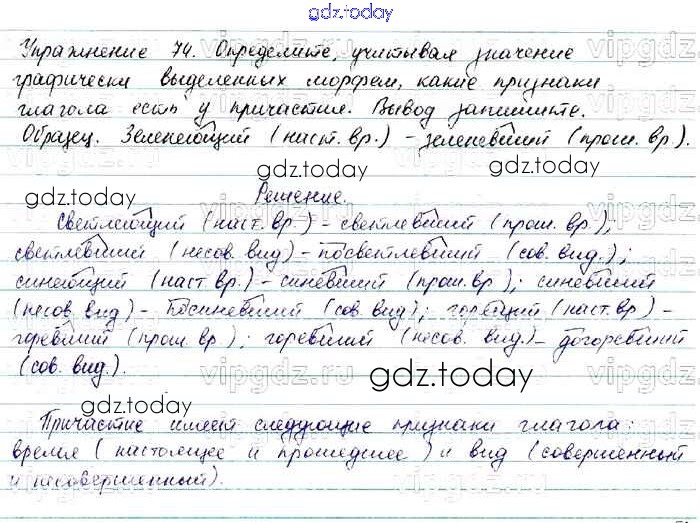 gdz.today
Упражнение 74. Определите, учитывая значение
графически выделенных морфем, какие признаки
глагола есть у причастия. Вывод запишите.
Образец. Зеленеющий (наст. вр.) – зеленевший (прош. вр.).
gdz.today gdz.today
Решение.
Светлеющий (наст. вр.) – светлевший (прош. вр.);
светлевший (несов. вид) – посветлевший (сов. вид.);
синеющий (наст. вр.) – синевший (прош. вр.); синевший
(несов. вид) – посиневший (сов. вид); горящий (наст. вр) –
горевший (прош. вр.); горевший (несов. вид.) – догоревший
(сов. вид.).
gdz.today
Причастие имеет следующие признаки глагола:
время (настоящее и прошедшее) и вид (совершенный
и несовершенный).
gdz.today gdz.today
vipgdz.ru